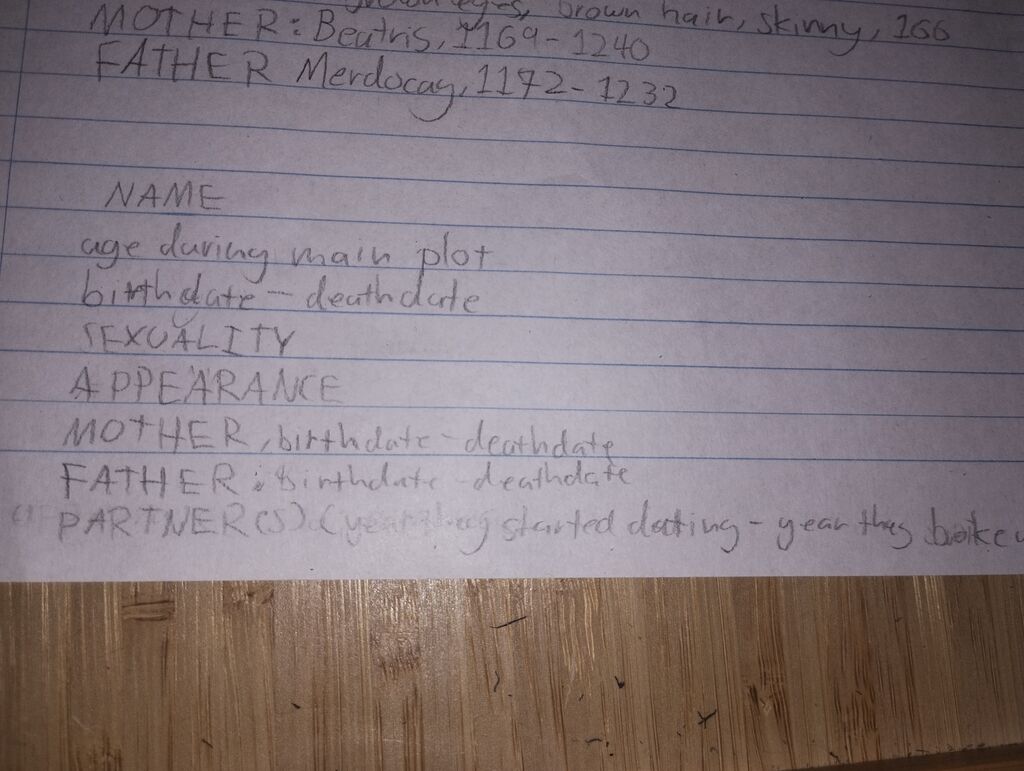 eyes, brown hair, skinny, 166
MOTHER: Beatris, 1169-1240
FATHER Merdocay, 1172-1232
NAME
age during main plot
birthdate - deathdate
SEXUALITY
APPEARANCE
MOTHER, birthdate-deathdate
FATHER: birthdate-deathdate
PARTNER(S). (year they started dating - year they broke